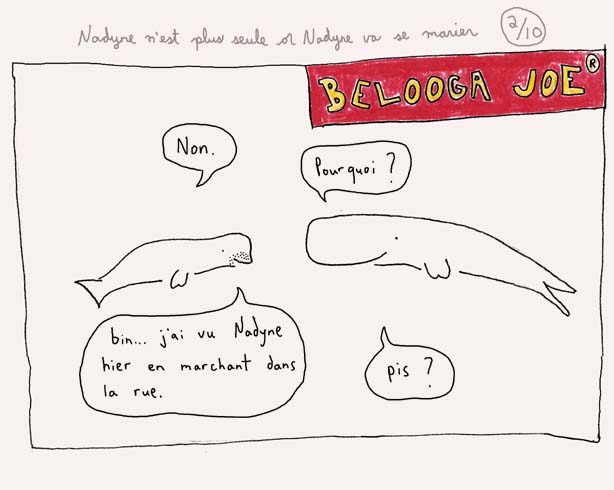 Nadyne n'est plus seule or Nadyne va se marier
2/10
BELOOGA JOE®
Non.
Pourquoi ?
bin... j'ai vu Nadyne
hier en marchant dans
la rue.
pis ?